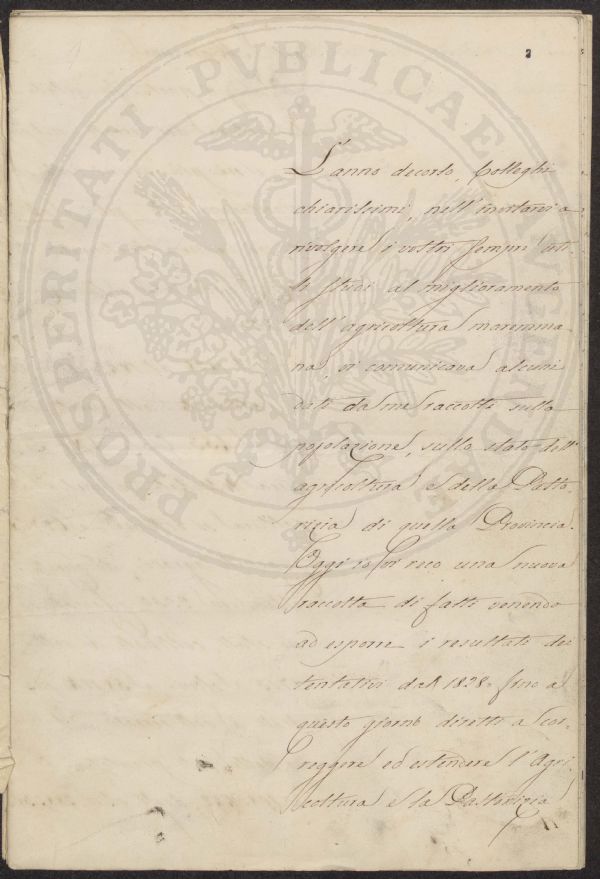 2
PROSPERITATI PVBLICAE AVGENDAE
L'anno decorso, Colleghi
chiarissimi, nell'invitarvi a
rivolgere i vostri sempre uti-
li studi al miglioramento
dell'agricoltura maremma
na, vi comunicava alcuni
dati da me raccolti sulla
popolazione, sullo stato dell'
agricoltura e della Pasto
rizia di quella Provincia.
Oggi io vi reco una nuova
raccolta di fatti venendo
ad esporre i resultati dei
tentativi dal 1828 fino a
questo giorno diretti a cor-
reggere ed estendere l'Agri-
coltura e la Pastorizia